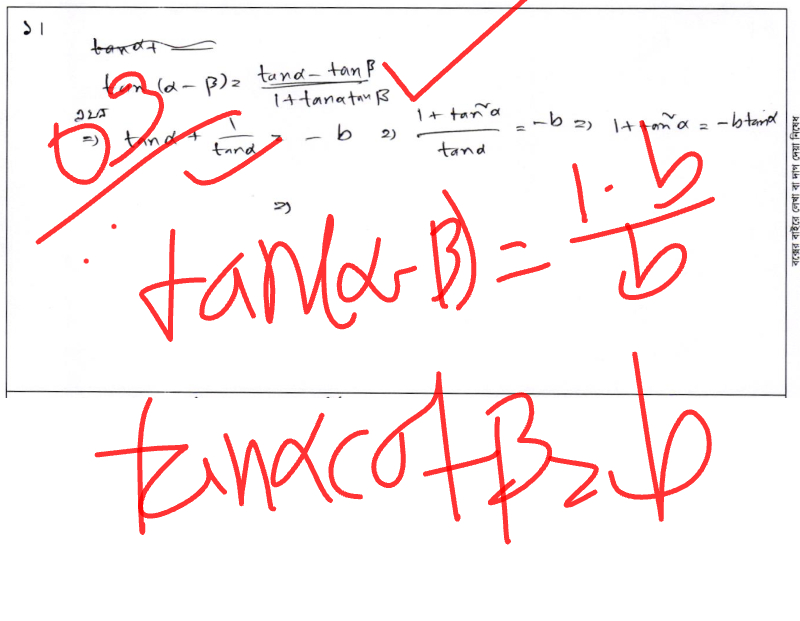 ১।
tan(α - β) = tanα - tanβ / 1 + tanα tanβ
⇒ tanα + 1/tanα = - b ⇒ 1 + tan²α / tanα = -b ⇒ 1 + tan²α = -b tanα
⇒
03
tan(α - β) = 1 . b / b
tanα cot β = b
বক্সের বাইরে লেখা বা দাগ দেয়া নিষেধ